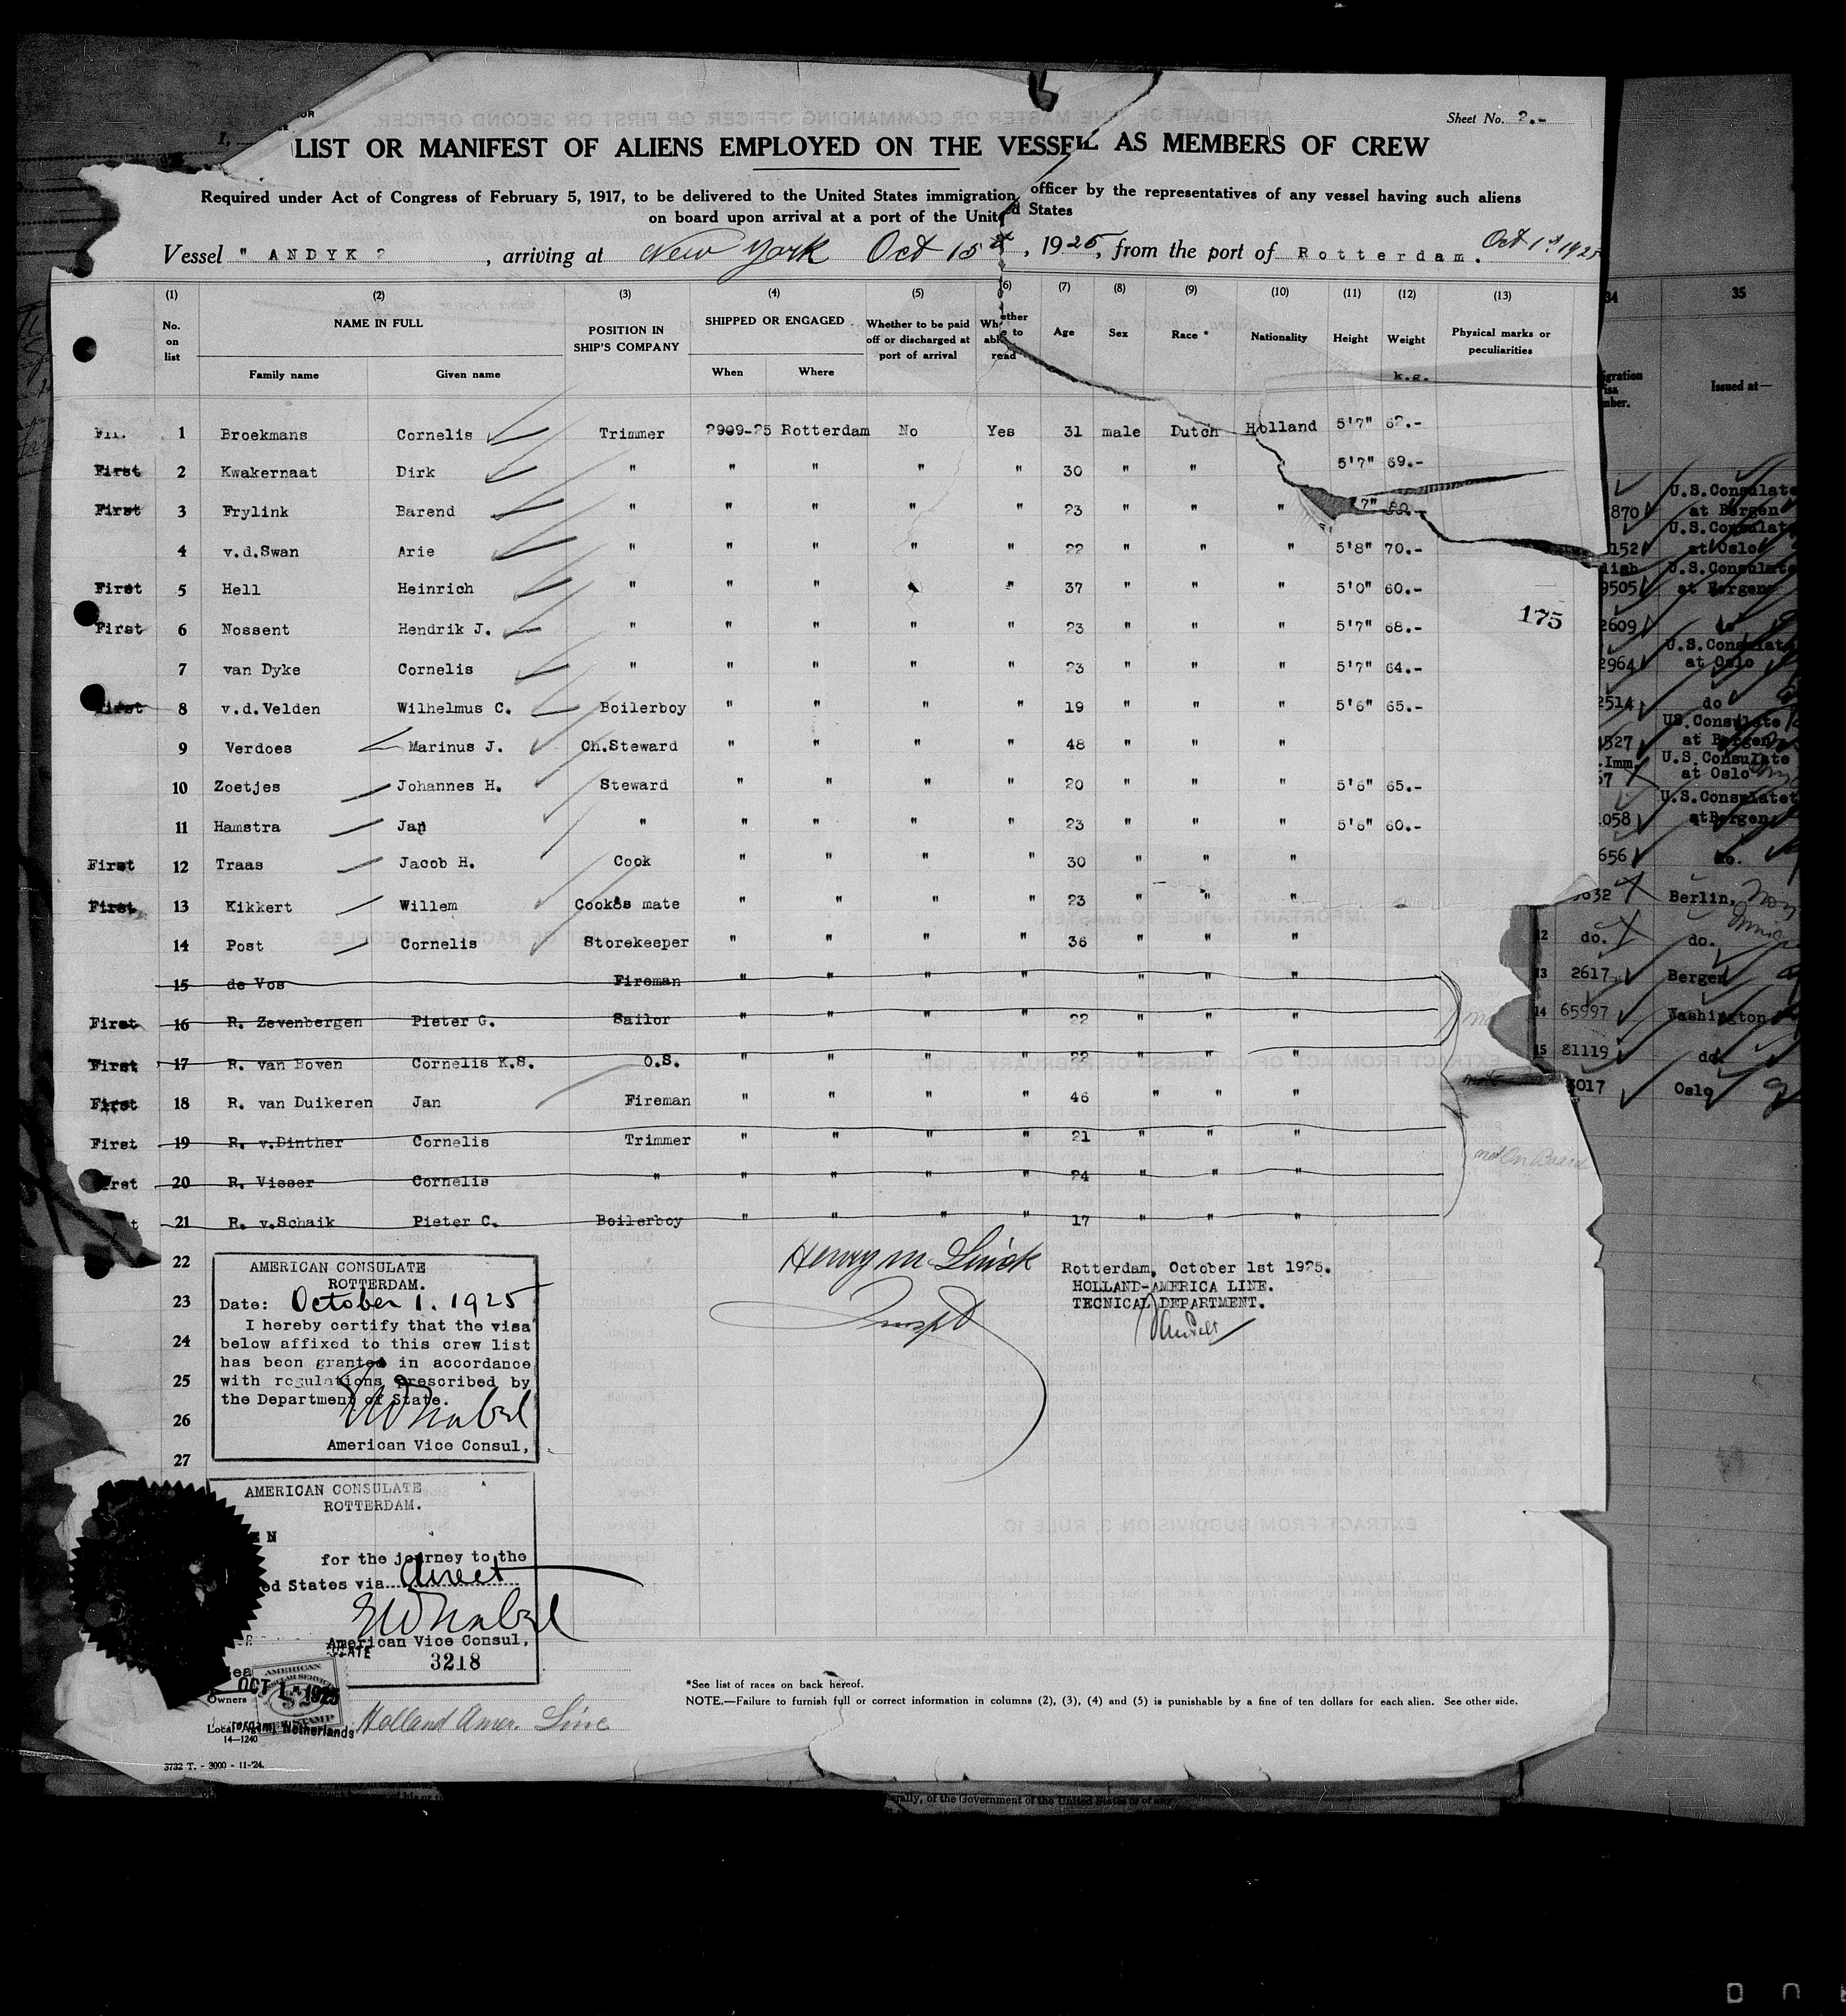 Sheet No. 2.-
LIST OR MANIFEST OF ALIENS EMPLOYED ON THE VESSEL AS MEMBERS OF CREW
Required under Act of Congress of February 5, 1917, to be delivered to the United States immigration officer by the representatives of any vessel having such aliens
on board upon arrival at a port of the United States
Vessel " ANDYK 2 , arriving at New York Oct 15th , 1925, from the port of Rotterdam. Oct 1st 1925
(1) (2) (3) (4) (5) (6) (7) (8) (9) (10) (11) (12) (13)
No. on list NAME IN FULL Family name Given name POSITION IN SHIP'S COMPANY SHIPPED OR ENGAGED When Where Whether to be paid off or discharged at port of arrival Whether able to read Age Sex Race * Nationality Height Weight k.g. Physical marks or peculiarities
1 Broekmans Cornelis Trimmer 2909-25 Rotterdam No Yes 31 male Dutch Holland 5'7" 62.-
First 2 Kwakernaat Dirk " " " " " 30 " " 5'7" 69.-
First 3 Frylink Barend " " " " " 23 " " " 7" 80.-
4 v.d.Swan Arie " " " " " 22 " " " 5'8" 70.-
First 5 Hell Heinrich " " " " " 37 " " " 5'0" 60.-
First 6 Nossent Hendrik J. " " " " " 23 " " " 5'7" 68.-
7 van Dyke Cornelis " " " " " 23 " " " 5'7" 64.-
First 8 v.d.Velden Wilhelmus C. Boilerboy " " " " 19 " " " 5'6" 65.-
9 Verdoes Marinus J. Ch.Steward " " " " 48 " " "
10 Zoetjes Johannes H. Steward " " " " 20 " " " 5'6" 65.-
11 Hamstra Jan " " " " " 23 " " " 5'6" 60.-
First 12 Traas Jacob H. Cook " " " " 30 " " "
First 13 Kikkert Willem Cook's mate " " " " 23 " " "
14 Post Cornelis Storekeeper " " " " 36 " " "
15 de Vos Fireman " " " " " " "
First 16 R. Zevenbergen Pieter G. Sailor " " " " 22 " " "
First 17 R. van Boven Cornelis K.S. O.S. " " " " 22 " " "
First 18 R. van Duikeren Jan Fireman " " " " 46 " " "
First 19 R. v.Dinther Cornelis Trimmer " " " " 21 " " "
20 R. Visser Cornelis " " " " " 24 " " "
21 R. v.Schaik Pieter C. Boilerboy " " " " 17 " " "
not On Board
175
22
23
24
25
26
27
AMERICAN CONSULATE
ROTTERDAM.
Date: October 1. 1925
I hereby certify that the visa
below affixed to this crew list
has been granted in accordance
with regulations prescribed by
the Department of State.
American Vice Consul,
Rotterdam, October 1st 1925.
HOLLAND-AMERICA LINE.
TECNICAL DEPARTMENT.
AMERICAN CONSULATE
ROTTERDAM.
for the journey to the
ed States via direct
American Vice Consul,
3218
OCT 1 - 1925
Owners
Local Netherlands Holland Amer. Line
14—1240
3732 T. - 3000 - 11-'24.
*See list of races on back hereof.
NOTE.—Failure to furnish full or correct information in columns (2), (3), (4) and (5) is punishable by a fine of ten dollars for each alien. See other side.
34 35
Issued at—
870 U.S.Consulate at Bergen
152 U.S.Consulate at Oslo
9505 U.S.Consulate at Bergen
2609 do
2964 U.S.Consulate at Oslo
2514 do
1527 US.Consulate at Bergen
Imm. U.S.Consulate at Oslo
058 U.S.Consulatet atBergen
656 do.
Berlin,
12 do. do.
13 2617 Bergen
14 65997 Washington
15 81119 do
3017 Oslo
erally, of the Government of the United States or of any